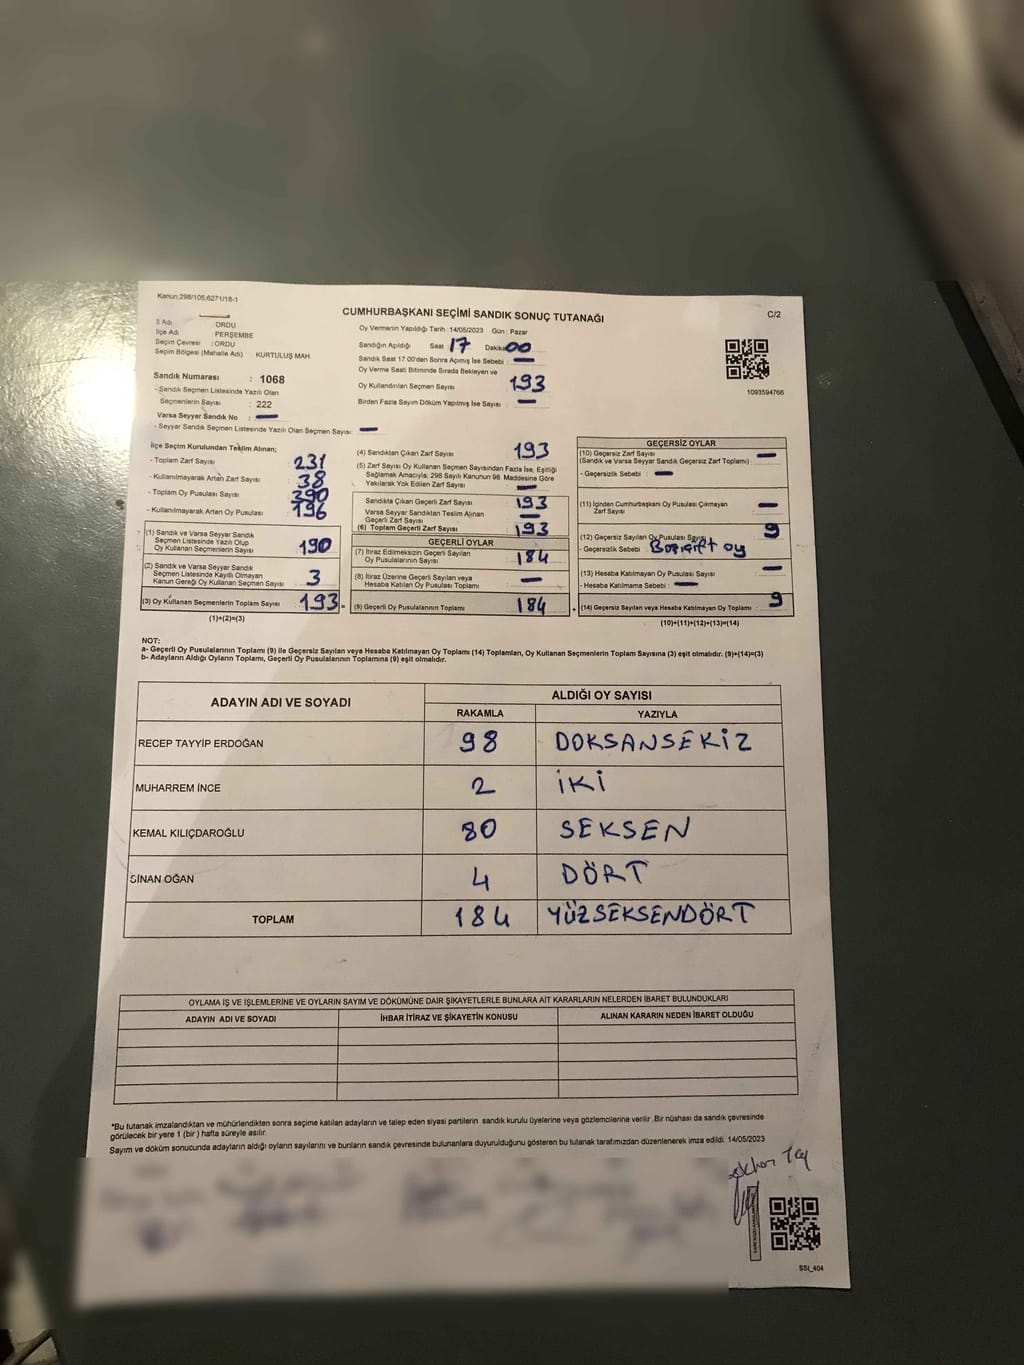 Kanun:298/105;6271/18-1
CUMHURBAŞKANI SEÇİMİ SANDIK SONUÇ TUTANAĞI
C/2
İl Adı : ORDU
İlçe Adı : PERŞEMBE
Seçim Çevresi : ORDU
Seçim Bölgesi (Mahalle Adı) KURTULUŞ MAH
Sandık Numarası : 1068
- Sandık Seçmen Listesinde Yazılı Olan
Seçmenlerin Sayısı : 222
Varsa Seyyar Sandık No : —
- Seyyar Sandık Seçmen Listesinde Yazılı Olan Seçmen Sayısı: —
Oy Vermenin Yapıldığı Tarih :14/05/2023 Gün : Pazar
Sandığın Açıldığı Saat 17 Dakika 00
Sandık Saat 17:00'den Sonra Açımış İse Sebebi : —
Oy Verme Saati Bitiminde Sırada Bekleyen ve
Oy Kullandırılan Seçmen Sayısı 193
Birden Fazla Sayım Döküm Yapılmış İse Sayısı : —
1093594766
İlçe Seçim Kurulundan Teslim Alınan;
- Toplam Zarf Sayısı : 231
- Kullanılmayarak Artan Zarf Sayısı : 38
- Toplam Oy Pusulası Sayısı : 390
- Kullanılmayarak Artan Oy Pusulası : 196
(1) Sandık ve Varsa Seyyar Sandık
Seçmen Listesinde Yazılı Olup
Oy Kullanan Seçmenlerin Sayısı : 190
(2) Sandık ve Varsa Seyyar Sandık
Seçmen Listesinde Kayıtlı Olmayan
Kanun Gereği Oy Kullanan Seçmen Sayısı : 3
(3) Oy Kullanan Seçmenlerin Toplam Sayısı : 193 =
(1)+(2)=(3)
(4) Sandıktan Çıkan Zarf Sayısı : 193
(5) Zarf Sayısı Oy Kullanan Seçmen Sayısından Fazla İse, Eşitliği
Sağlamak Amacıyla; 298 Sayılı Kanunun 98. Maddesine Göre
Yakılarak Yok Edilen Zarf Sayısı : —
Sandıkta Çıkan Geçerli Zarf Sayısı : 193
Varsa Seyyar Sandıktan Teslim Alınan
Geçerli Zarf Sayısı : —
(6) Toplam Geçerli Zarf Sayısı : 193
GEÇERLİ OYLAR
(7) İtiraz Edilmeksizin Geçerli Sayılan
Oy Pusulalarının Sayısı : 184
(8) İtiraz Üzerine Geçerli Sayılan veya
Hesaba Katılan Oy Pusulası Toplamı : —
(9) Geçerli Oy Pusulalarının Toplamı : 184 +
GEÇERSİZ OYLAR
(10) Geçersiz Zarf Sayısı
(Sandık ve Varsa Seyyar Sandık Geçersiz Zarf Toplamı) : —
- Geçersizlik Sebebi : —
(11) İçinden Cumhurbaşkanı Oy Pusulası Çıkmayan
Zarf Sayısı : —
(12) Geçersiz Sayılan Oy Pusulası Sayısı : 9
- Geçersizlik Sebebi : oy
(13) Hesaba Katılmayan Oy Pusulası Sayısı : —
- Hesaba Katılmama Sebebi : —
(14) Geçersiz Sayılan veya Hesaba Katılmayan Oy Toplamı : 9
(10)+(11)+(12)+(13)=(14)
NOT:
a- Geçerli Oy Pusulalarının Toplamı (9) ile Geçersiz Sayılan veya Hesaba Katılmayan Oy Toplamı (14) Toplamları, Oy Kullanan Seçmenlerin Toplam Sayısına (3) eşit olmalıdır. (9)+(14)=(3)
b- Adayların Aldığı Oyların Toplamı, Geçerli Oy Pusulalarının Toplamına (9) eşit olmalıdır.
ADAYIN ADI VE SOYADI ALDIĞI OY SAYISI
RAKAMLA YAZIYLA
RECEP TAYYİP ERDOĞAN 98 DOKSANSEKİZ
MUHARREM İNCE 2 İKİ
KEMAL KILIÇDAROĞLU 80 SEKSEN
SİNAN OĞAN 4 DÖRT
TOPLAM 184 YÜZSEKSENDÖRT
OYLAMA İŞ VE İŞLEMLERİNE VE OYLARIN SAYIM VE DÖKÜMÜNE DAİR ŞİKAYETLERLE BUNLARA AİT KARARLARIN NELERDEN İBARET BULUNDUKLARI
ADAYIN ADI VE SOYADI İHBAR İTİRAZ VE ŞİKAYETİN KONUSU ALINAN KARARIN NEDEN İBARET OLDUĞU
*Bu tutanak imzalandıktan ve mühürlendikten sonra seçime katılan adayların ve talep eden siyasi partilerin sandık kurulu üyelerine veya gözlemcilerine verilir .Bir nüshası da sandık çevresinde
görülecek bir yere 1 (bir ) hafta süreyle asılır.
Sayım ve döküm sonucunda adayların aldığı oyların sayılarını ve bunların sandık çevresinde bulunanlara duyurulduğunu gösteren bu tutanak tarafımızdan düzenlenerek imza edildi. 14/05/2023
SSI_404